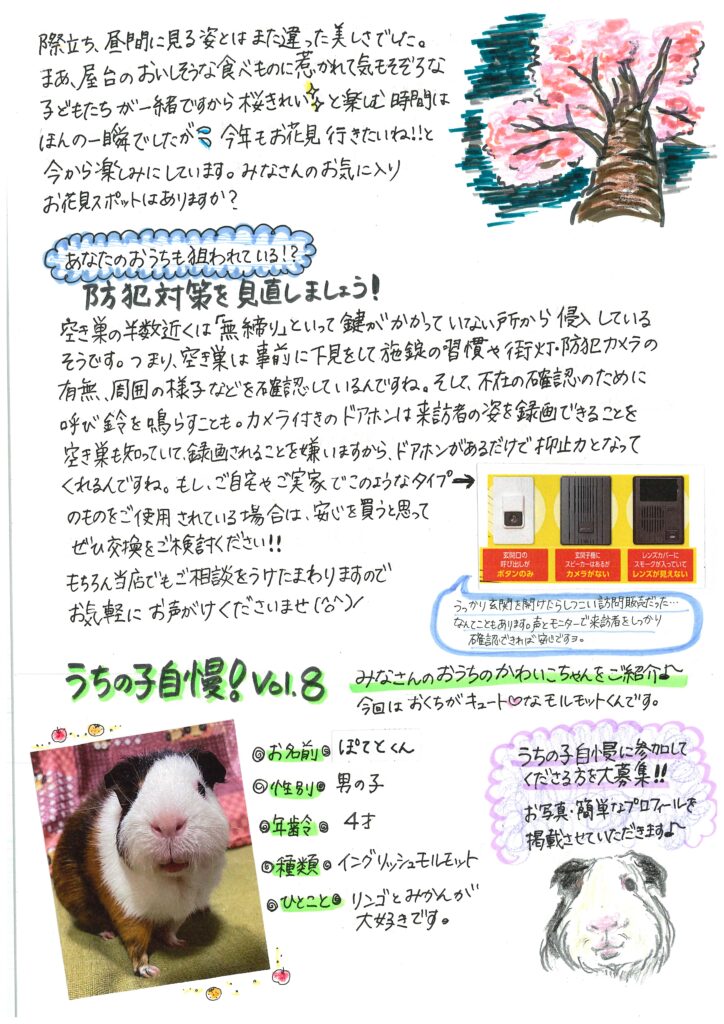 際立ち、昼間に見る姿とはまた違った美しさでした。
まあ、屋台のおいしそうな食べものに惹かれて気もそぞろな
子どもたちが一緒ですから桜きれい✨と楽しむ時間は
ほんの一瞬でしたが💦今年もお花見行きたいね!!と
今から楽しみにしています。みなさんのお気に入り
お花見スポットはありますか?
あなたのおうちも狙われている!?
防犯対策を見直しましょう!
空き巣の半数近くは「無締り」といって鍵がかかっていない所から侵入している
そうです。つまり、空き巣は事前に下見をして施錠の習慣や街灯・防犯カメラの
有無、周囲の様子などを確認しているんですね。そして、不在の確認のために
呼び鈴を鳴らすことも。カメラ付きのドアホンは来訪者の姿を録画できることを
空き巣も知っていて、録画されることを嫌いますから、ドアホンがあるだけで抑止力となって
くれるんですね。もし、ご自宅やご実家でこのようなタイプ→
のものをご使用されている場合は、安心を買うと思って
ぜひ交換をご検討ください!!
もちろん当店でもご相談をうけたまわりますので
お気軽にお声がけくださいませ(^○^)/
玄関口の
呼び出しが
ボタンのみ
玄関子機に
スピーカーはあるが
カメラがない
レンズカバーに
スモークが入っていて
レンズが見えない
うっかり玄関を開けたらしつこい訪問販売だった…
なんてこともあります。声とモニターで来訪者をしっかり
確認できれば安心ですヨ。
うちの子自慢! Vol.8
みなさんのおうちのかわいこちゃんをご紹介♪
今回はおくちがキュート♡なモルモットくんです。
お名前 ぽてとくん
性別 男の子
年齢 4才
種類 イングリッシュモルモット
ひとこと リンゴとみかんが
大好きです。
うちの子自慢に参加して
くださる方を大募集!!
お写真・簡単なプロフィールを
掲載させていただきます♪